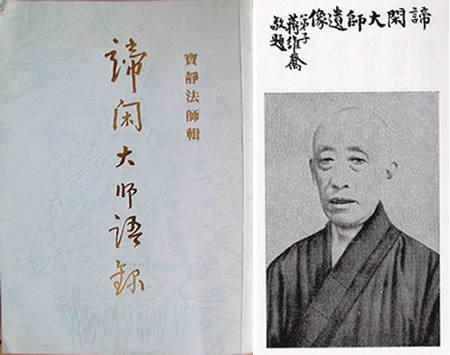 寶靜法師輯
諦闲大师語錄
諦閑大師遺像
弟子蔣維喬
敬題